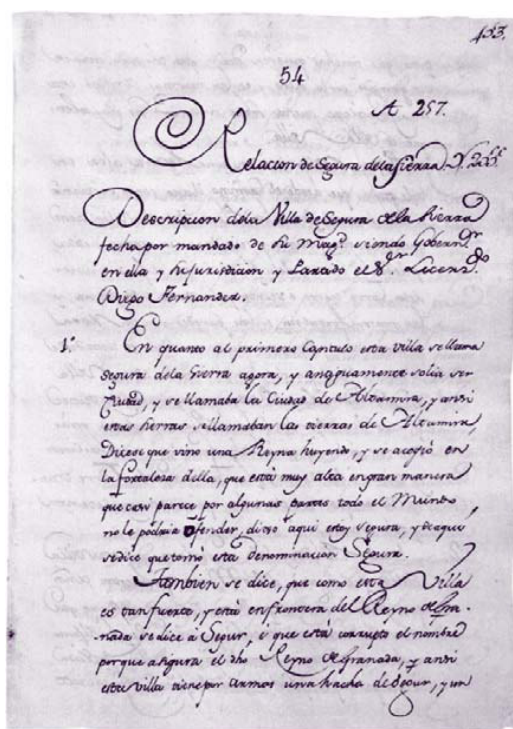 453.
54
A 257.
Relacion de Segura de la Sierra
Descripcion dela Villa de Segura de la Sierra
fecha por mandado de su Mag.d siendo Gobern.or
en ella y su jurisdicion y Partido el S.or Licen.do
Diego Fernandez.
1.º En quanto al primero Capitulo esta villa se llama
Segura dela Sierra agora, y antiguamente solia ser
Ciudad, y se llamaba la Ciudad de Altamira, y ansi
estas tierras se llamaban las tierras de Altamira,
Dicese que vino una Reyna huyendo, y se acogió en
la fortaleza della, que está muy alta en gran manera
que casi parece por algunas partes todo el Mundo
no le podria ofender, dixo aqui estoy segura, y de que
se dice que tomó esta denominacion Segura.
Tambien se dice, que como esta Villa
es tan fuerte, y está en frontera del Reyno de Gra-
nada se dice a Segur, é que está corrupto el nombre
porque asigura el dho Reyno de Granada, y ansi
esta villa tiene por armas una hacha de Segur, y un